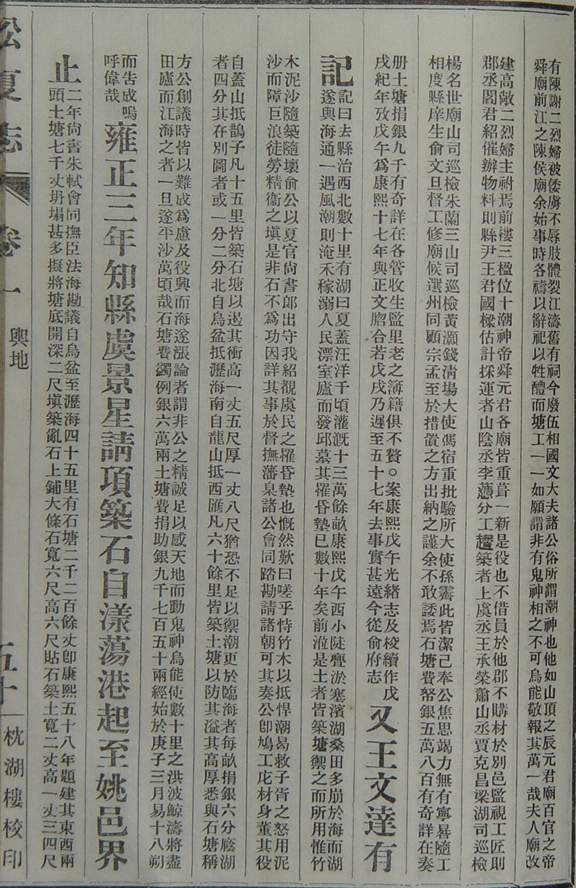 有陳謝二烈婦被倭虜不辱肢體裂江濤舊有祠今廢伍相國文大夫諸公俗所謂潮神也他如山頂之辰元君廟百官之帝
舜廟前江之陳侯廟余始事時各禱以辭祀以牲醴而塘工一一如願謂非有鬼神相之不可烏能敬報其萬一哉夫人廟改
建高敞二烈婦主祔焉前樓三楹位十潮神帝舜元君各廟皆重葺一新是役也不借員於他郡不購材於別邑監視工匠則
郡丞閻君紹催辦物料則縣尹王君國樑估計採運者山陰丞李蕙分工趲築者上虞丞王承榮蕭山丞賈克昌梁湖司巡檢
楊名世廟山司巡檢朱蘭三山司巡檢黃灝錢清場大使馮宿重批驗所大使孫霱此皆潔己奉公焦思竭力無有寧晷隨工
相度縣庠生俞文旦督工修廟候選州同顧宗孟至於措置之方出納之謹余不敢諉焉石塘費帑銀五萬八百有奇詳在奏
册土塘捐銀九千有奇詳在各管收生監里老之簿籍俱不贅○案康熙戊午光緒志及校續作戊
戌紀年攷戊午爲康熙十七年與正文脗合若戊戌乃遲至五十七年去事實甚遠今從俞府志
又王文達有
記
記曰去縣治西北數十里有湖曰夏蓋汪洋千頃灌漑十三萬餘畝康熙戊午西小陡亹淤塞濱湖桑田多崩於海而湖
遂與海通一遇風潮則淹禾稼溺人民漂室廬而發邱墓其罹昏墊已數十年矣前涖是土者皆築塘禦之而所用惟竹
木泥沙隨築隨壞俞公以夏官尚書郎出守我紹覩虞民之罹昏墊也慨然歎曰嗟乎恃竹木以抵悍潮易救子胥之怒用泥
沙而障巨浪徒勞精衛之塡是非石不爲功因詳其事於督撫藩臬諸公會同踏勘請諸朝可其奏公卽鳩工庀材身董其役
自蓋山抵鵲子凡十五里皆築石塘以遏其衝高一丈五尺厚一丈八尺猶恐不足以禦潮更於臨海者每畝捐銀六分廢湖
者四分其在別圖者或一分二分北自烏盆抵瀝海南自龍山抵西匯凡六十餘里皆築土塘以防其溢其高厚悉與石塘稱
方公創議時皆以難成爲慮及役興而海遂漲論者謂非公之精誠足以感天地而動鬼神烏能使數十里之洪波鯨濤將盡
田廬而江海之者一旦遂平沙萬頃哉石塘費蠲例銀六萬兩土塘費捐助銀九千七百五十兩經始於庚子三月易十八朔
而告成嗚
呼偉哉
雍正二年知縣虞景星請項築石自漾蕩港起至姚邑界
止
二年尚書朱軾會同撫臣法海勘議自烏盆至瀝海四十五里有石塘二千二百餘丈卽康熙五十八年題建其東西兩
頭土塘七千丈坍塌甚多擬將塘底開深二尺塡築亂石上鋪大條石寬六尺高六尺貼石築土寬二丈高一丈三四尺
松夏志
卷一
輿地
五十
枕湖樓校印